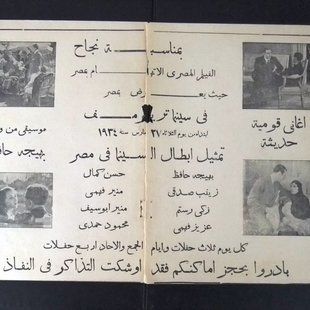 بمناسبة نجاح
الفيلم المصرى
بمصر
حيث يعرض بمصر
فى سينما
ابتداء من يوم الثلاثاء ٢٧ مارس سنة ١٩٣٤
تمثيل ابطال السينما فى مصر
بهيجه حافظ
حسن كمال
زينب صدقى
منير فهمى
زكى رستم
منير ابوسيف
عزيز فهمى
محمود حمدى
كل يوم ثلاث حفلات وايام الجمع والاحاد اربع حفلات
بادروا بحجز اماكنكم فقد اوشكت التذاكر فى النفاذ
اغانى قومية
حديثة
موسيقى من
بهيجه حافظ